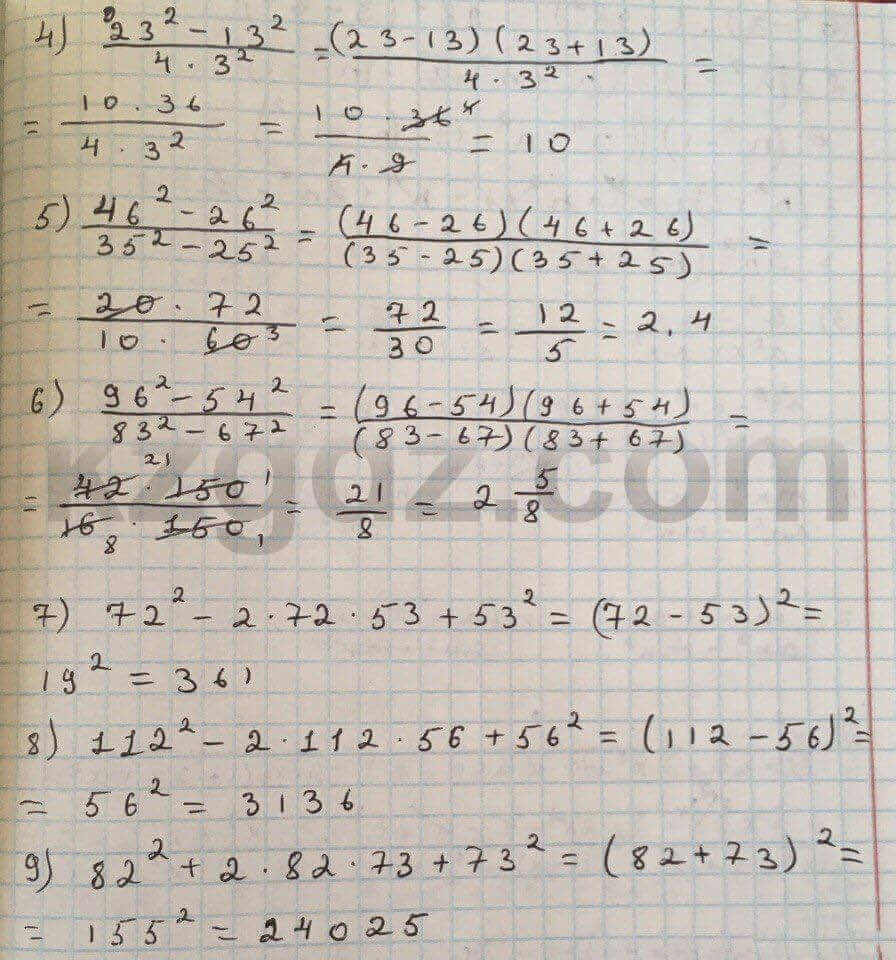 4) (23² - 13²)/(4 · 3²) = ((23-13)(23+13))/(4 · 3²) =
= (10 · 36)/(4 · 3²) = (10 · 36 4)/(4 · 9) = 10
5) (46² - 26²)/(35² - 25²) = ((46-26)(46+26))/((35-25)(35+25)) =
= (20 · 72)/(10 · 60 3) = 72/30 = 12/5 = 2.4
6) (96² - 54²)/(83² - 67²) = ((96-54)(96+54))/((83-67)(83+67)) =
= (42 21 · 150 1)/(16 8 · 150 1) = 21/8 = 2 5/8
kzgdz.com
7) 72² - 2·72·53 + 53² = (72 - 53)² =
19² = 361
8) 112² - 2·112·56 + 56² = (112 - 56)² =
= 56² = 3136
9) 82² + 2·82·73 + 73² = (82 + 73)² =
= 155² = 24025